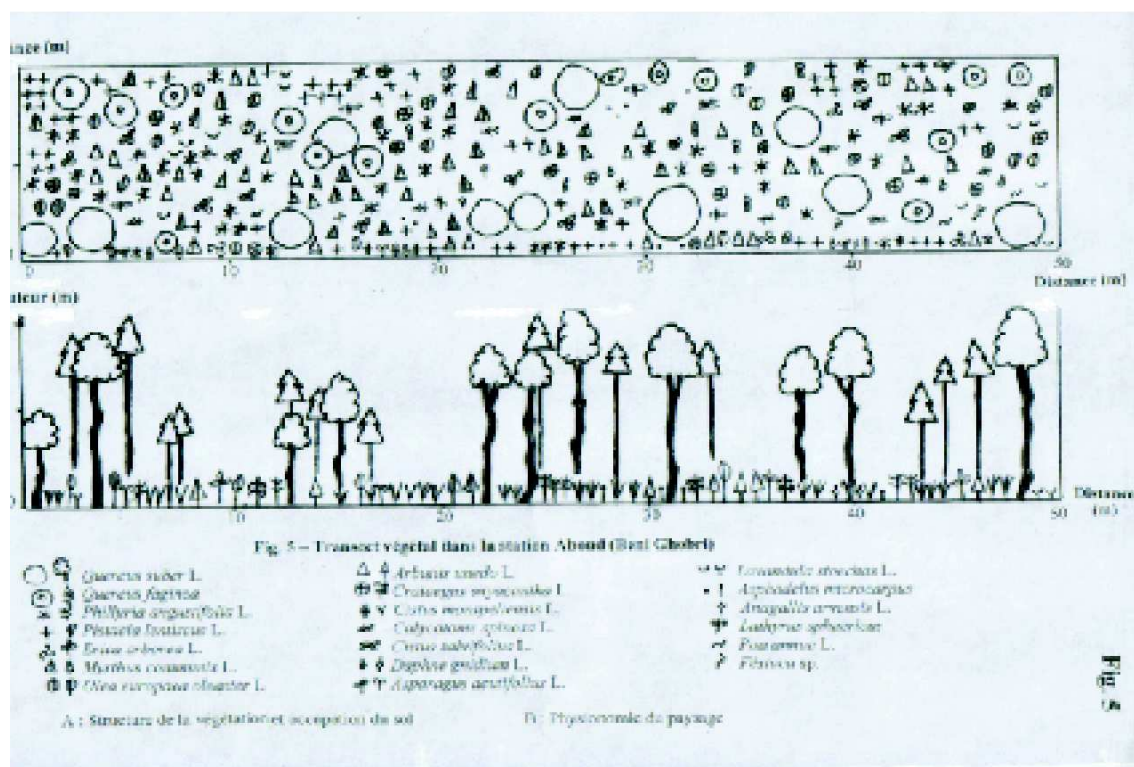 ance (m)
0 10 20 30 40 50
Distance (m)
uteur (m)
0 10 20 30 40 50
Distance (m)
Fig. 5 – Transect végétal dans la station Aboud (Beni Ghobri)
Quercus suber L.
Quercus faginea
Phillyria angustifolia L.
Pistacia lentiscus L.
Erica arborea L.
Myrthus communis L.
Olea europaea oleaster L.
Arbutus unedo L.
Crataegus L.
Cistus monspeliensis L.
Calycotome spinosa L.
Cistus salvifolius L.
Daphne gnidium L.
Asparagus acutifolius L.
Lavandula stoechas L.
Asphodelus microcarpus
Anagallis arvensis L.
Lathyrus
L.
sp.
A : Structure de la végétation et occupation du sol
B : Physionomie du paysage
Fig. 5